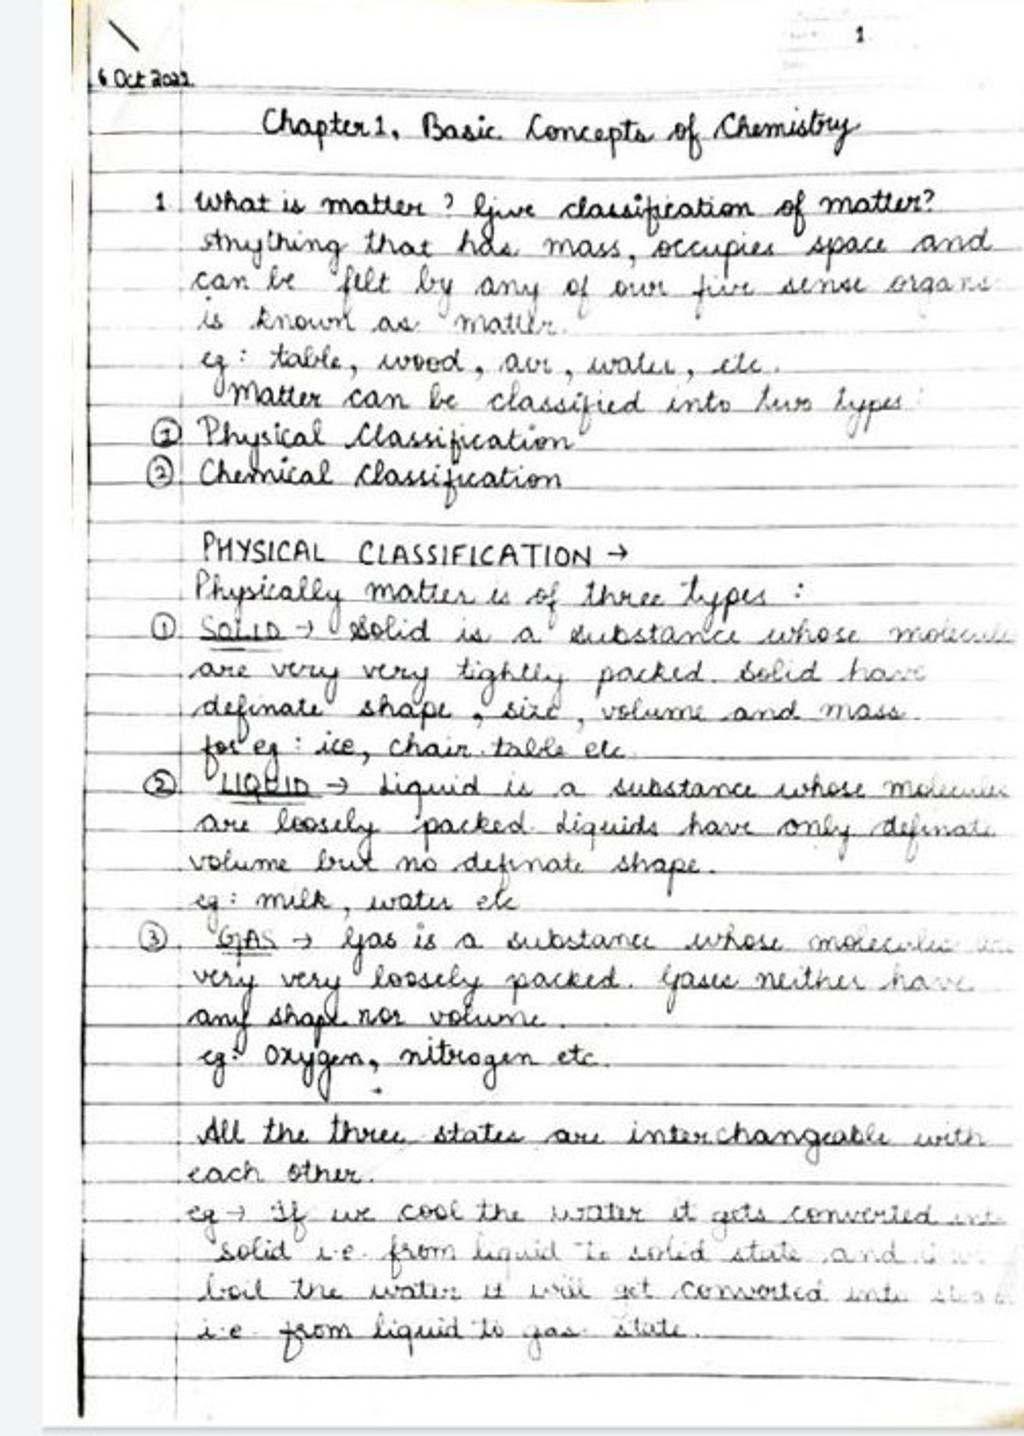 1
6 Oct 2022
Chapter 1. Basic Concepts of Chemistry
1 What is matter? Give classification of matter?
Anything that has mass, occupies space and
can be felt by any of our five sense organs
is known as matter.
eg: table, wood, air, water, etc.
Matter can be classified into two types:
① Physical Classification
② Chemical Classification
PHYSICAL CLASSIFICATION →
Physically matter is of three types:
① SOLID → Solid is a substance whose molecule
are very very tightly packed. Solid have
definate shape, size, volume and mass.
for eg: ice, chair table etc
② LIQUID → Liquid is a substance whose molecules
are loosely packed. Liquids have only definate
volume but no definate shape.
eg: milk, water etc
③ GAS → Gas is a substance whose molecules are
very very loosely packed. Gases neither have
any shape nor volume.
eg: Oxygen, nitrogen etc.
All the three states are interchangeable with
each other.
eg → If we cool the water it gets converted into
solid i.e. from liquid to solid state and
boil the water it will get converted into steam
i.e. from liquid to gas state.